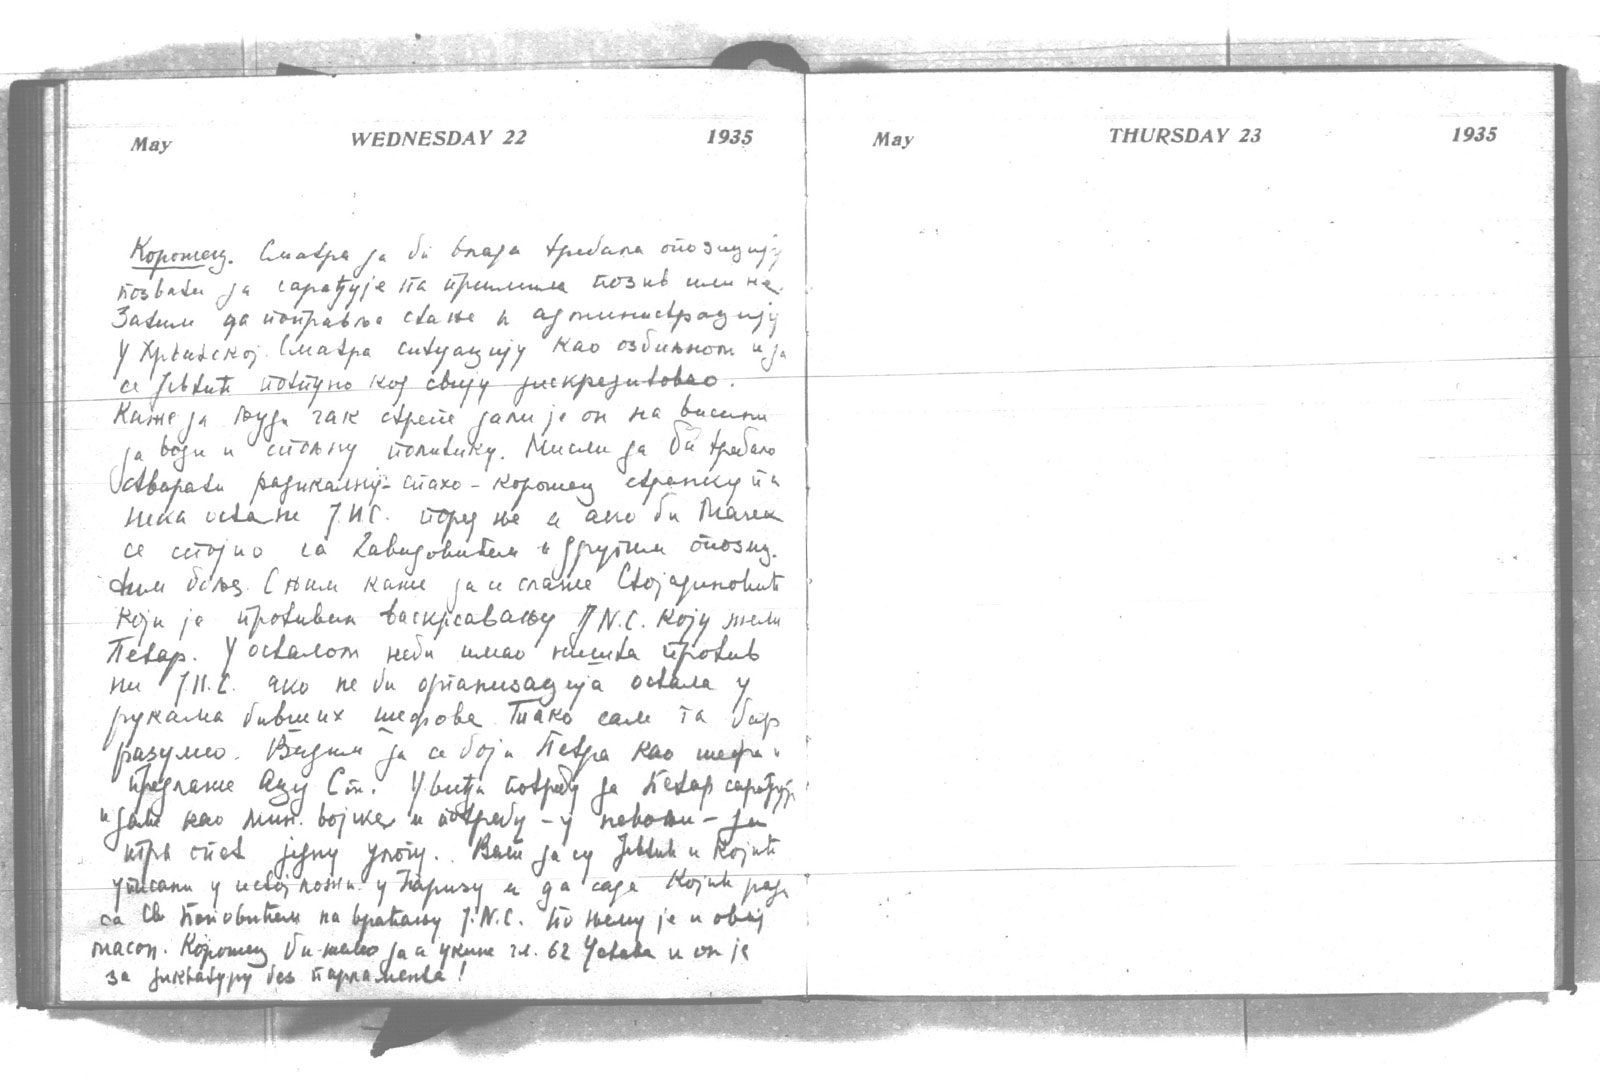 May WEDNESDAY 22 1935
Корошец. Сматра да би влада требала опозицију
позвати да сарађује па примила позив или не.
Затим да поправља стање и администрацију
у Хрватској. Сматра ситуацију као озбиљном и да
се Јевтић потпуно код свију дискредитовао.
Каже да људи чак стрепе дали је он на висини
да води и спољну политику. Мисли да би требало
стварати радикалну-спахо-корошец странку па
нека остане Ј.Н.С. поред ње и ако би Мачек
се спојио са Давидовићем и другим опозиц.
тим боље. С њим каже да се слаже Стојадиновић
који је противан васкрсавању ЈN.С. коју жели
Петар. У осталом неби имао ништа против
ни Ј.Н.С. ако не би организација остала у
рукама бивших шефова. Тако сам га бар
разумео. Видим да се боји Петра као шефа и
предлаже Ацу Ст. Увиђа потребу да Петар сарађује
и даље као мин. војске и потребу - у невољи - да
игра опет једну улогу. Вели да су Јевтић и Којић
уписани у истој ложи у Паризу и да сада Којић ради
са Св Поповићем на враћању Ј.N.С. По њему је и овај
масон. Корошец би желео да се укине чл. 62 Устава и он је
за диктатуру без парламента!
May THURSDAY 23 1935